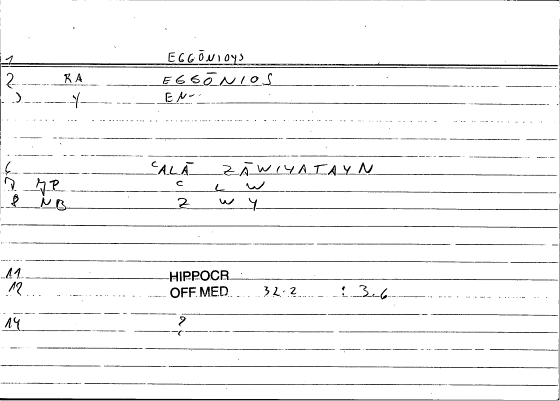 1 EGGŌNIOYS
2 RA EGGŌNIOS
3 Y EN--
6 ʿALĀ ZĀWIYATAYN
7 JP ʿ L W
8 NB Z W Y
11 HIPPOCR
12 OFF.MED 32.2 : 3.6
14 ?